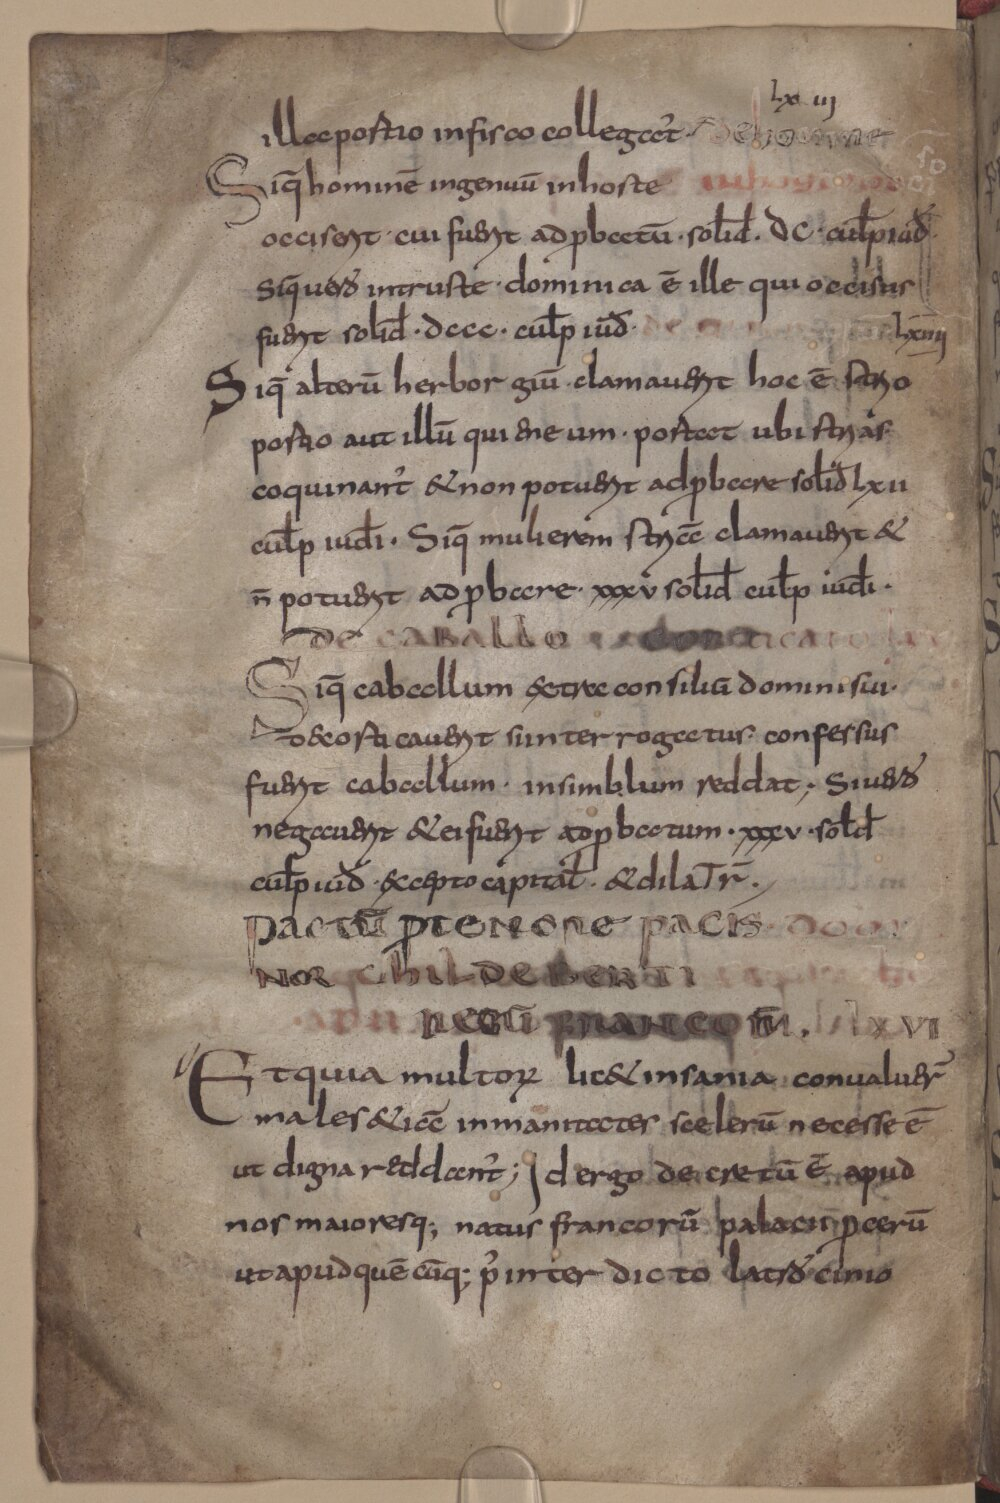 lxiii
illa postio in fisco collegat̄· De homine
Siq̄ hominē ingenuū in hoste
occiserit· cui fuerit adp̱batū· solid̄· DC· cul̄p iud̄
Siq̄ uero in truste· dominica ē ille qui occisus
fuerit solid̄· dccc· cul̄p iud̄· lxiiii
Siq̄ alterū herborgiū clamauerit hoc ē strio
postio aut illū qui eneum· postat ubi strias
coquinant̄ & non potuerit adp̱bare solid̄ lxii
cul̄p iudi· Siq̄ mulierem striā clamauerit &
n̄ potuerit adp̱bare· xxxv solid̄ cul̄p iudi·
DE CABALLO
Siq̄ caballum extra consiliū domini sui·
decosticauerit s̄ interrogatus confessus
fuerit caballum· insimblum reddat; Si uero
negauerit & ei fuerit adp̱batum· xxxv· solid̄
cul̄p iud̄· excepto capital̄· & dilatr̄·
PACTŪ P̱TENORE PACIS DOM
NOR CHILDEBERTI
REGŪ FRANCOR̄· LXVI
Et quia multoꝝ lic& insania conualuer̄
males& iā inmanitates scelerū necesse ē
ut digna reddant̄; Id ergo decretū ē apud
nos maioresq; natus francorū palacii p̱cerū
ut apud quēcūq; p̄ inter dicto latrocinio